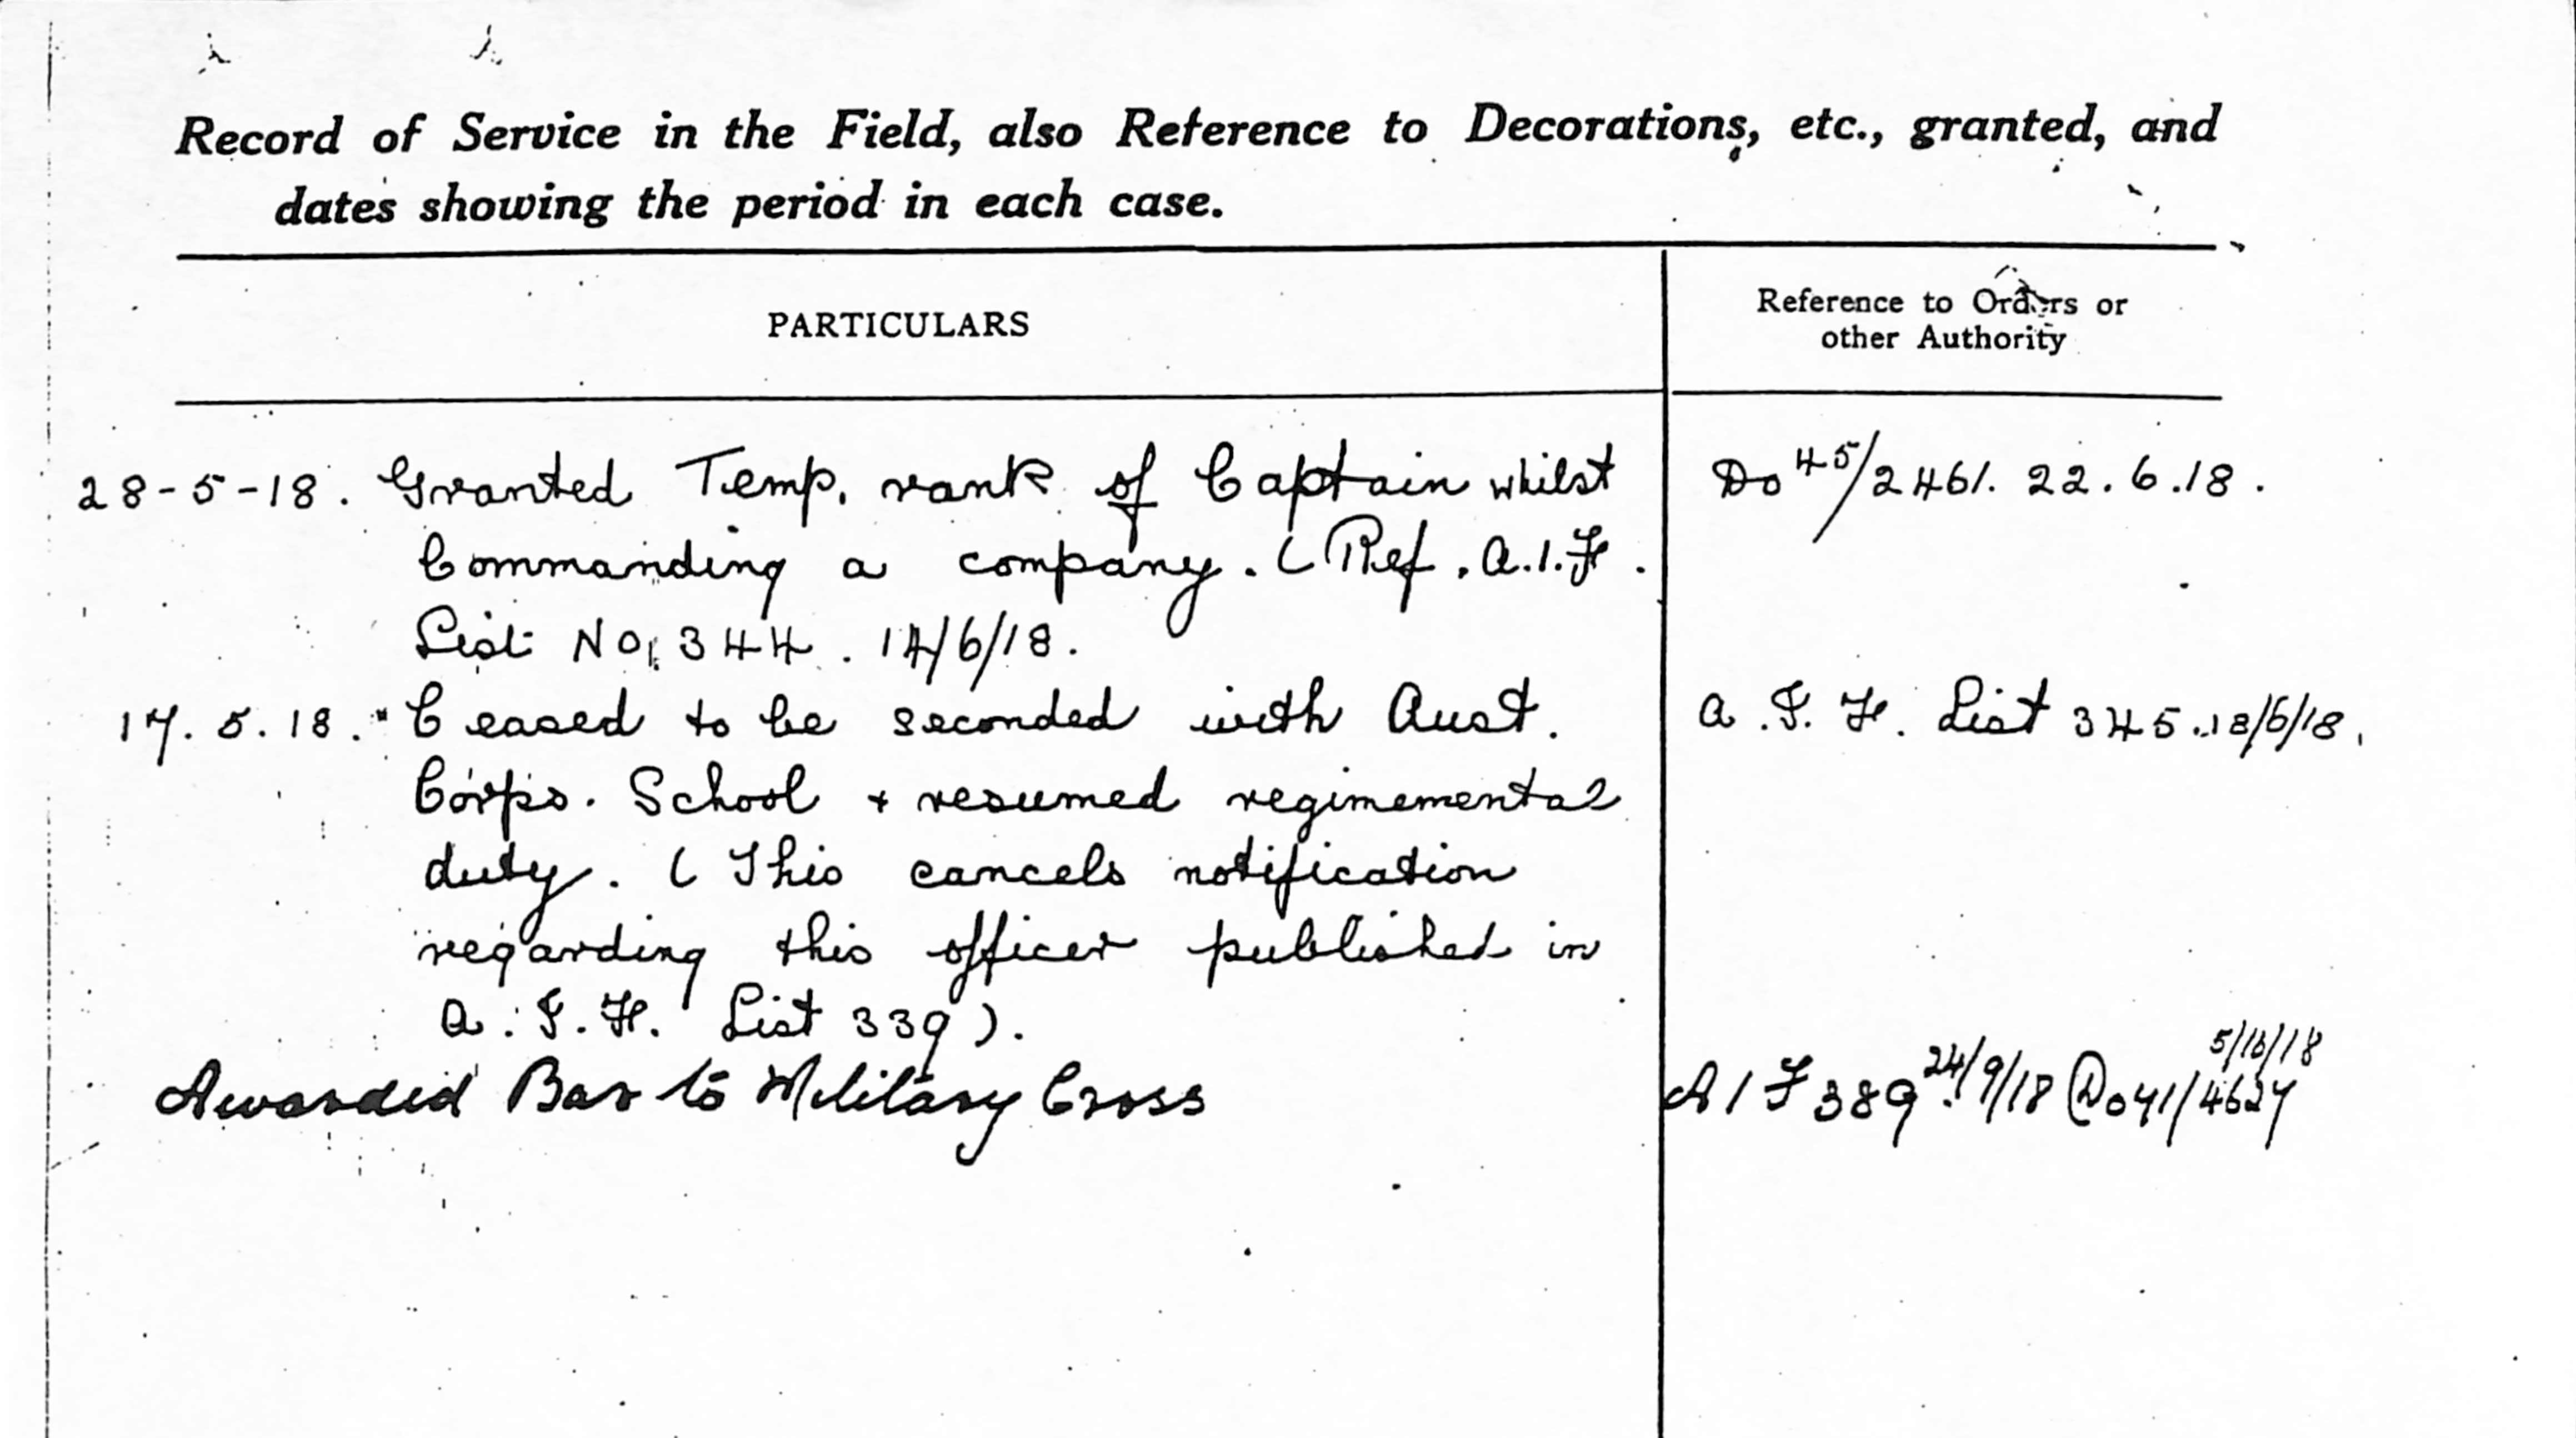 Record of Service in the Field, also Reference to Decorations, etc., granted, and
dates showing the period in each case.
PARTICULARS
Reference to Orders or
other Authority
28-5-18. Granted Temp. rank of Captain whilst
Do 45/2461. 22.6.18.
Commanding a company. (Ref. A.I.F.
List No. 344. 14/6/18.
17.5.18. Ceased to be seconded with Aust.
A.I.F. List 345. 18/6/18.
Corps. School + resumed regimemental
duty. (This cancels notification
regarding this officer published in
A.I.F. List 339).
Awarded Bar to Military Cross
AIF 389. 24/9/18 Do 41/4627 5/10/18